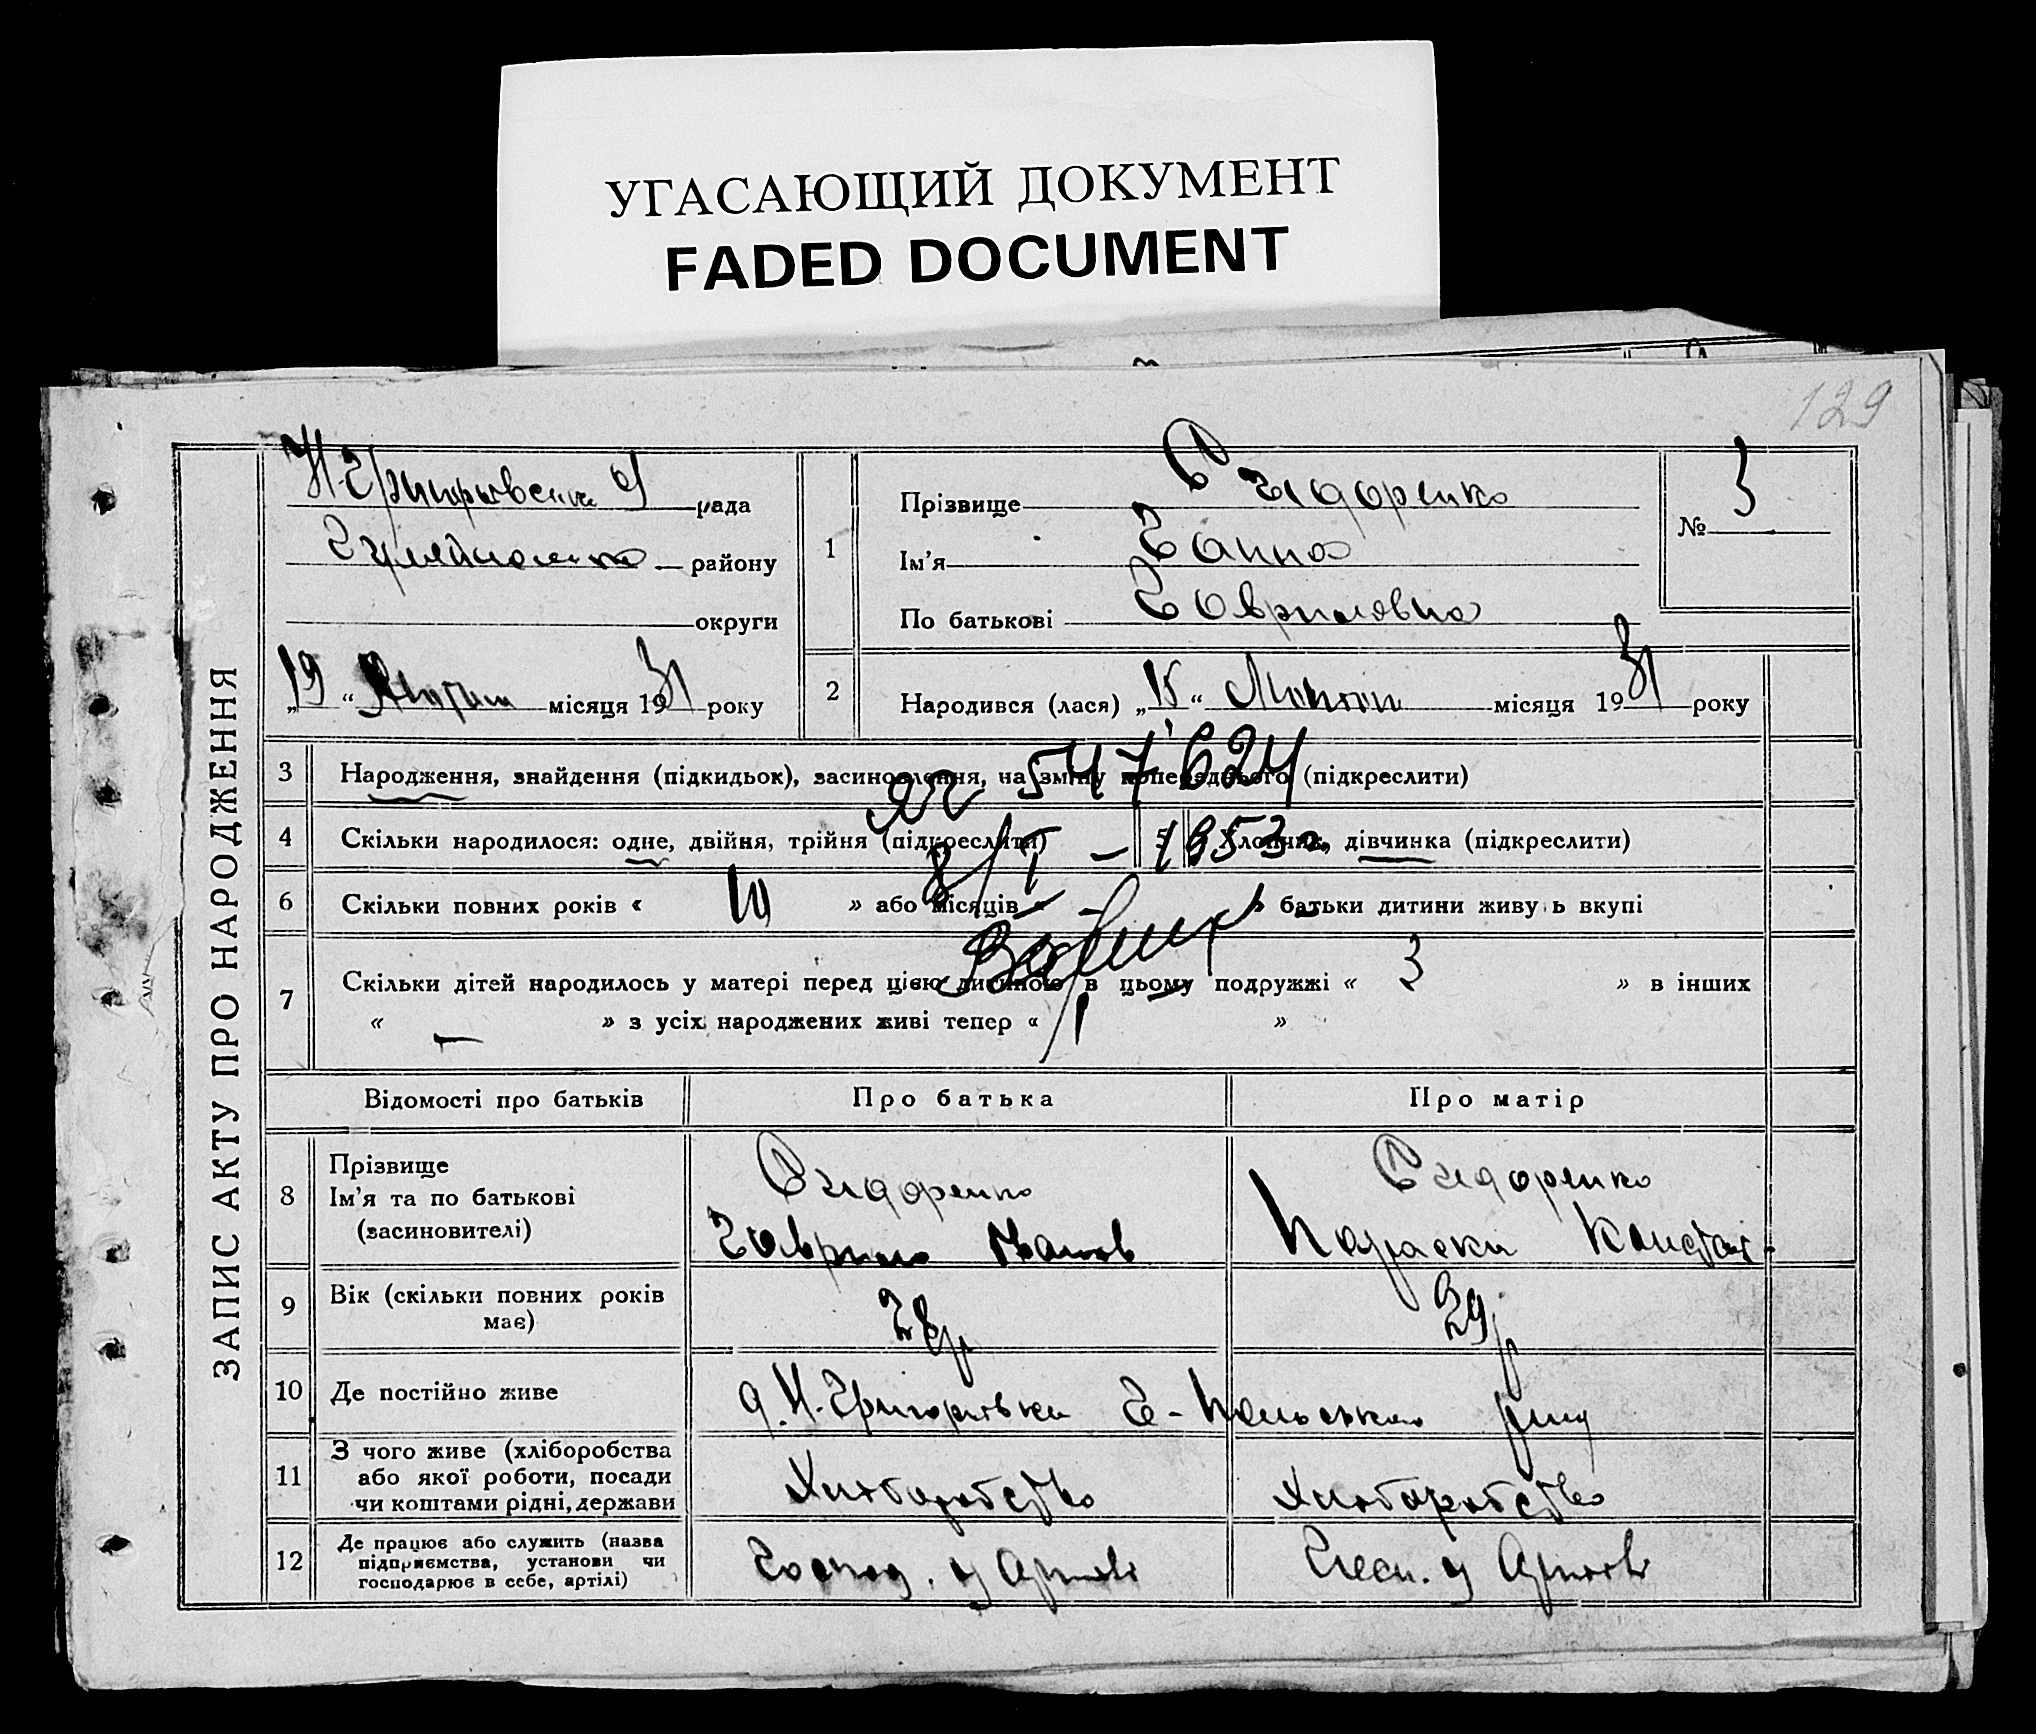 УГАСАЮЩИЙ ДОКУМЕНТ
FADED DOCUMENT
129
ЗАПИС АКТУ ПРО НАРОДЖЕННЯ
рада
району
округи
„19“ місяця 1931 року
1
Прізвище Сидоренко
Ім'я Ганна
По батькові Говриловна
№ 3
2
Народився (лася) „15“ місяця 1931 року
3 Народження, знайдення (підкидьок), засиновлення, на зміну попереднього (підкреслити)
547624
4 Скільки народилося: одне, двійня, трійня (підкреслити)
5 Хлопчик, дівчинка (підкреслити)
8/I – 1953
6 Скільки повних років « 10 » або місяців « – » батьки дитини живуть вкупі
7 Скільки дітей народилось у матері перед цією дитиною в цьому подружжі « 3 » в інших
« – » з усіх народжених живі тепер « »
Відомості про батьків Про батька Про матір
8 Прізвище
Ім'я та по батькові
(засиновителі)
Сидоренко
Говрило Иванов
Сидоренко
Параска Констан-
9 Вік (скільки повних років має)
28р
29р
10 Де постійно живе
Н-Григорівка Г-Польського
11 З чого живе (хліборобства
або якої роботи, посади
чи коштами рідні, держави
Хліборобство
Хліборобство
12 Де працює або служить (назва
підприємства, установи чи
господарює в себе, артілі)
Господ. у Артілі
Госп. у Артілі